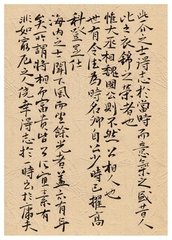 此一介之士得志於當時而意氣之盛昔人
比之衣錦之榮者也
惟大丞相魏國公則不然公相人也
世有令德為時名卿自公少時已擢高
科登顯仕
海內之士聞下風而望餘光者蓋亦有年
矣所謂將相而富貴皆公所宜素有
非如窮厄之人僥幸得志於一時出於庸夫